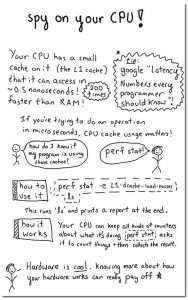 spy on your CPU!
Your CPU has a small
cache on it (the L1 cache)
that it can access in
~0.5 nanoseconds!
faster than RAM!
200 times
tip:
google "Latency
Numbers every
programmer
should know"
If you're trying to do an operation
in microseconds, CPU cache usage matters!
how do I know if
my program is using
those caches?
perf stat
how to
use it
perf stat -e L1-dcache-load-misses ls
This runs `ls` and prints a report at the end.
how it
works
Your CPU can keep all kinds of counters
about what it's doing. perf stat asks
it to count things & then collects the results.
Hardware is cool. Knowing more about how
your hardware works can really pay off